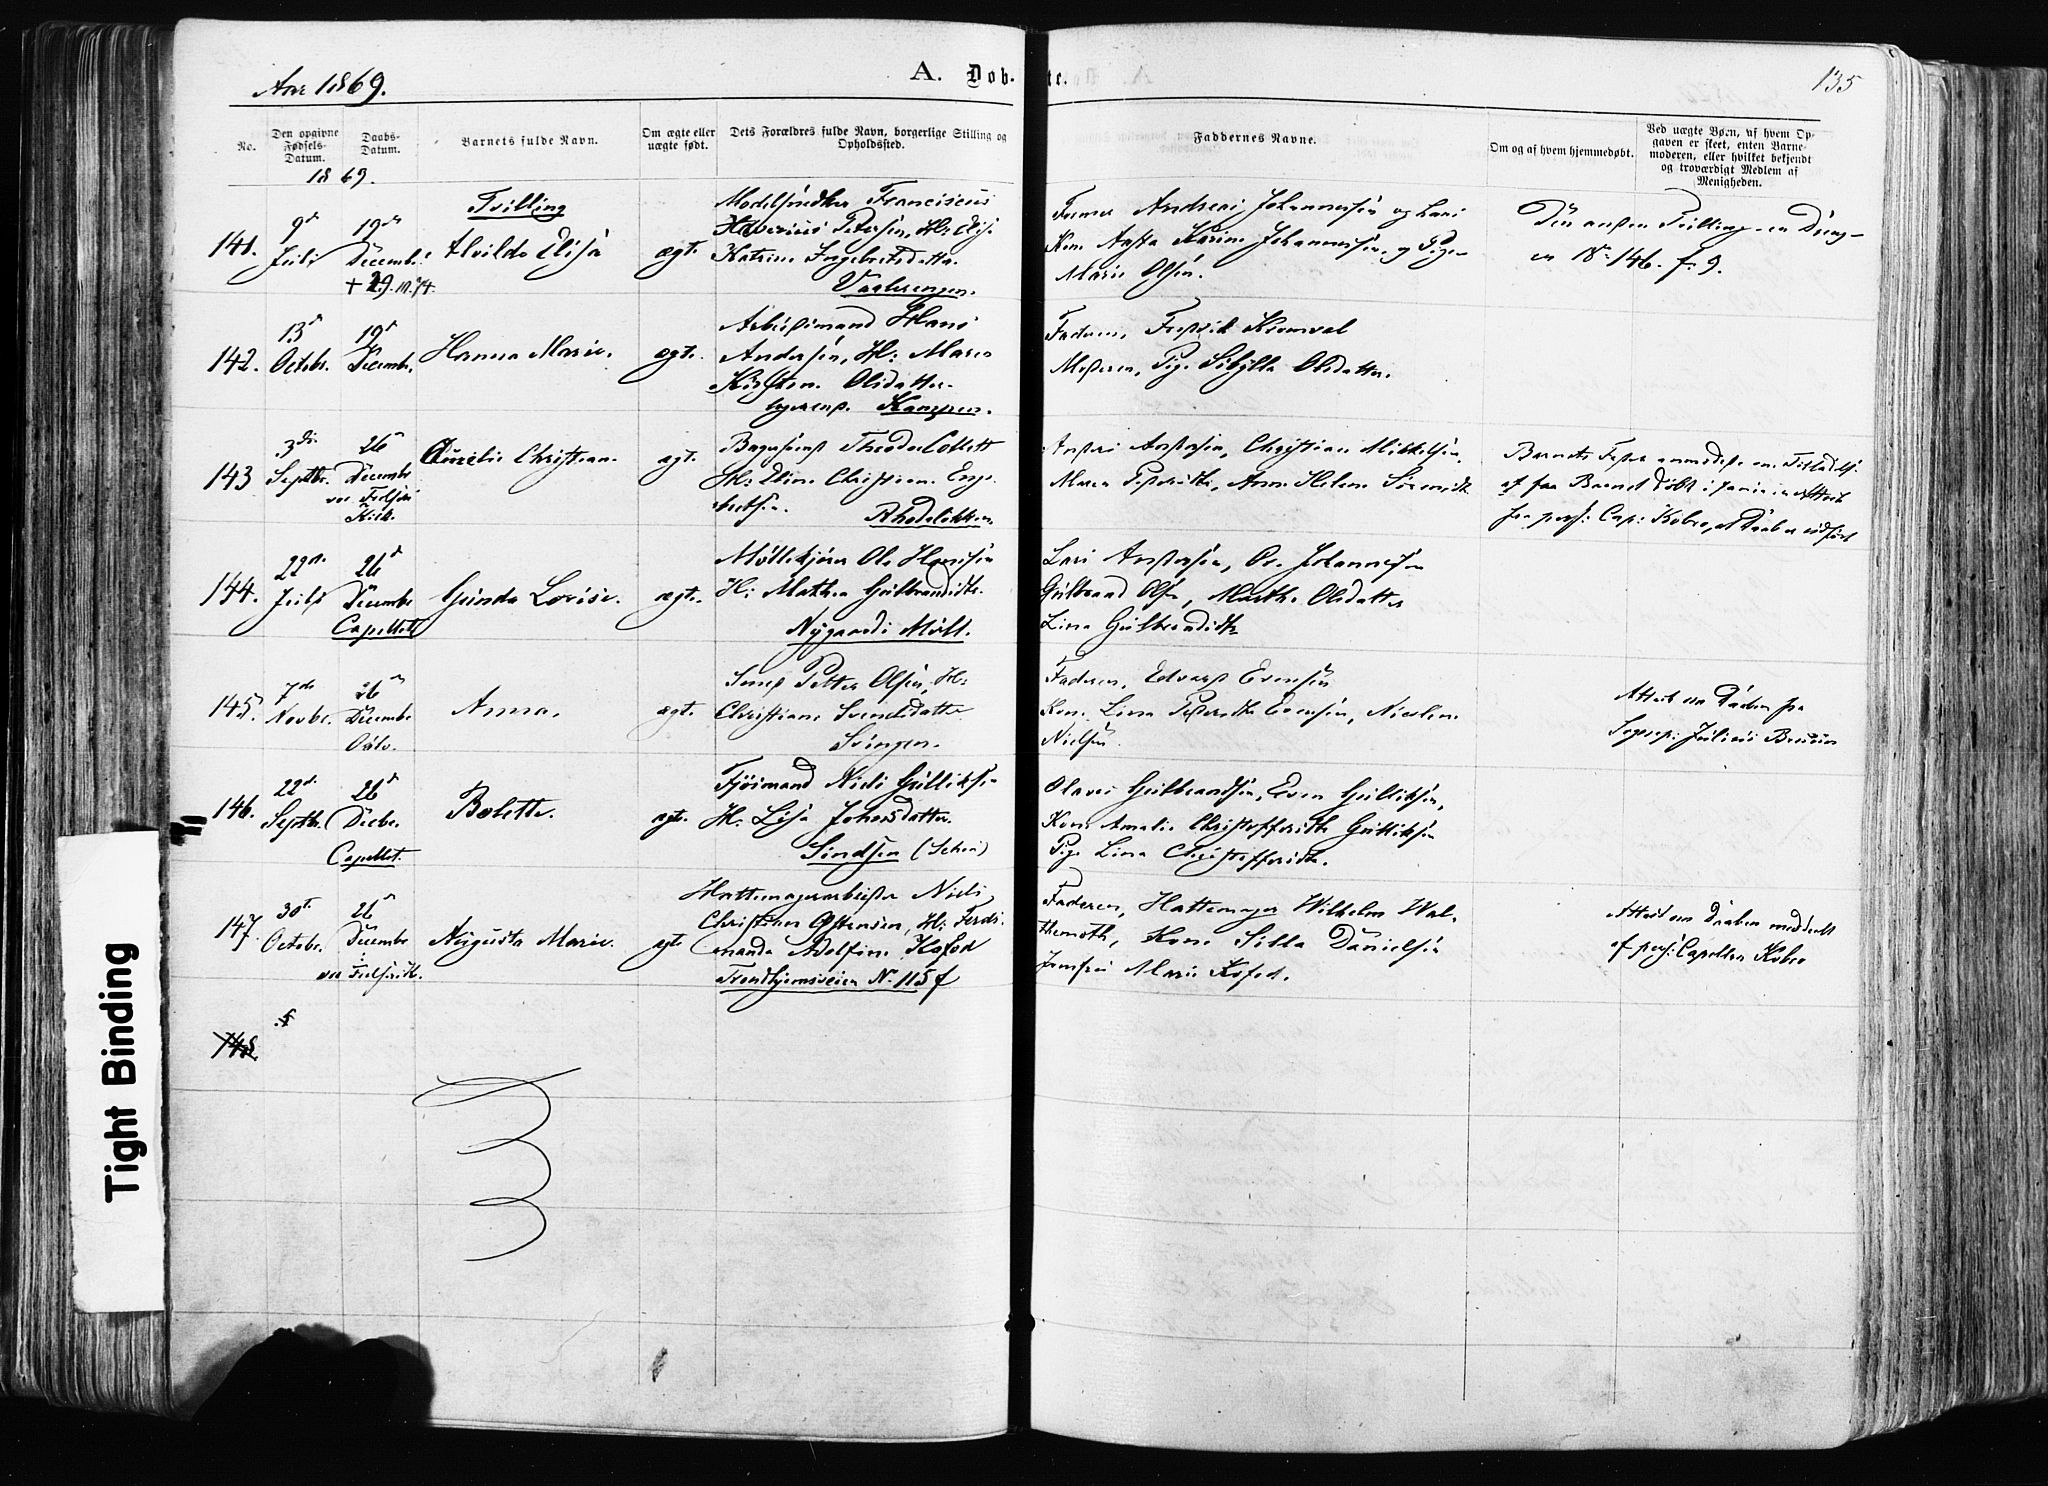 Aar 1869.
A. Døbte.
135
No.
Den opgivne Fødsels-Datum.
Daabs-Datum.
Barnets fulde Navn.
Om ægte eller uægte født.
Dets Forældres fulde Navn, borgerlige Stilling og Opholdssted.
Faddernes Navne.
Om og af hvem hjemmedøbt.
Ved uægte Børn, af hvem Opgaven er skeet, enten Barnemoderen, eller hvilket bekjendt og troværdigt Medlem af Menigheden.
1869.
141.
9de Juli
19de Decembr.
+ 29. 10. 74.
Tvilling
Alvilde Elisa
ægt.
Modelsnedker Franciscus
Petersen, H: Elise
Katrine Ingebretsdatter
Vaalerengen.
Andreas Johannessen og Lars
Kone Karine Johannessen, og Pige
Marie Olsen.
Den anden Tvilling - en Dreng -
146. f. 9.
142.
13de Octobr.
19de Decembr.
Hanna Marie.
ægt.
Arbeidsmand Hans
Andersen, H: Maren
Kirstine Olsdatter
Kampen.
Faderen, Fredrik
Moderen, Pige Sibylla Olsdatter.
143
3die Septbr.
26de Decembr
Kirk.
Aurelie Christiane.
ægt.
Theodor Collett
H: Eline Christiane Enge-
bretsen.
Rhodeløkken
Anders Andersen, Christian Mikkelsen,
Maren Pedersdtr, Anne Helene
Barnets Fader
af faa Barnet døbt i
fra pers: Cap: Kobro, at Daaben udført
144.
22de Juli
26de Decembr
Capellet
Gunda Lovise.
ægt.
Møllekjører Ole Hansen
H: Mathea Gulbrandsdtr.
Nygaards Mølle.
Lars Andersen, Johannesen
Gulbrand Olsen, Marthe Olsdatter
Lina Gulbrandsdtr
145.
7de Novbr.
26de Decembr
Oslo.
Anna.
ægt.
Smed Petter Olsen, H:
Christiane Svendsdatter
Svingen.
Faderen, Edvard Evensen
Kone Lina Pedersdtr Evensen, Nicoline
Nielsen
Attest om Daaben fra
Sognep: Julius Bruun
146.
22de Septbr.
26de Decbr.
Capellet.
Bolette.
ægt.
Fjøsmand Niels Gulliksen
H: Lisa Johansdatter.
Sindsen
Olaves Gulbrandsen, Even Gulliksen,
Kone Amalie Christoffersdtr Gulliksen
Pige Lina Christoffersdtr.
147.
30te Octobr.
26de Decembr
Augusta Marie.
ægt
Hattemagerarbeider Niels
Christian Ostensen, H: Ferdi-
nanda Adolfine Kofod
Trondhjemsveien No. 115 f
Faderen, Hattemager Wilhelm Wal-
themath, Kone Silla Danielsen
Jomfru Marie Kofod.
Attest om Daaben meddelt
af pers: Capellan Kobro
148.
Tight Binding